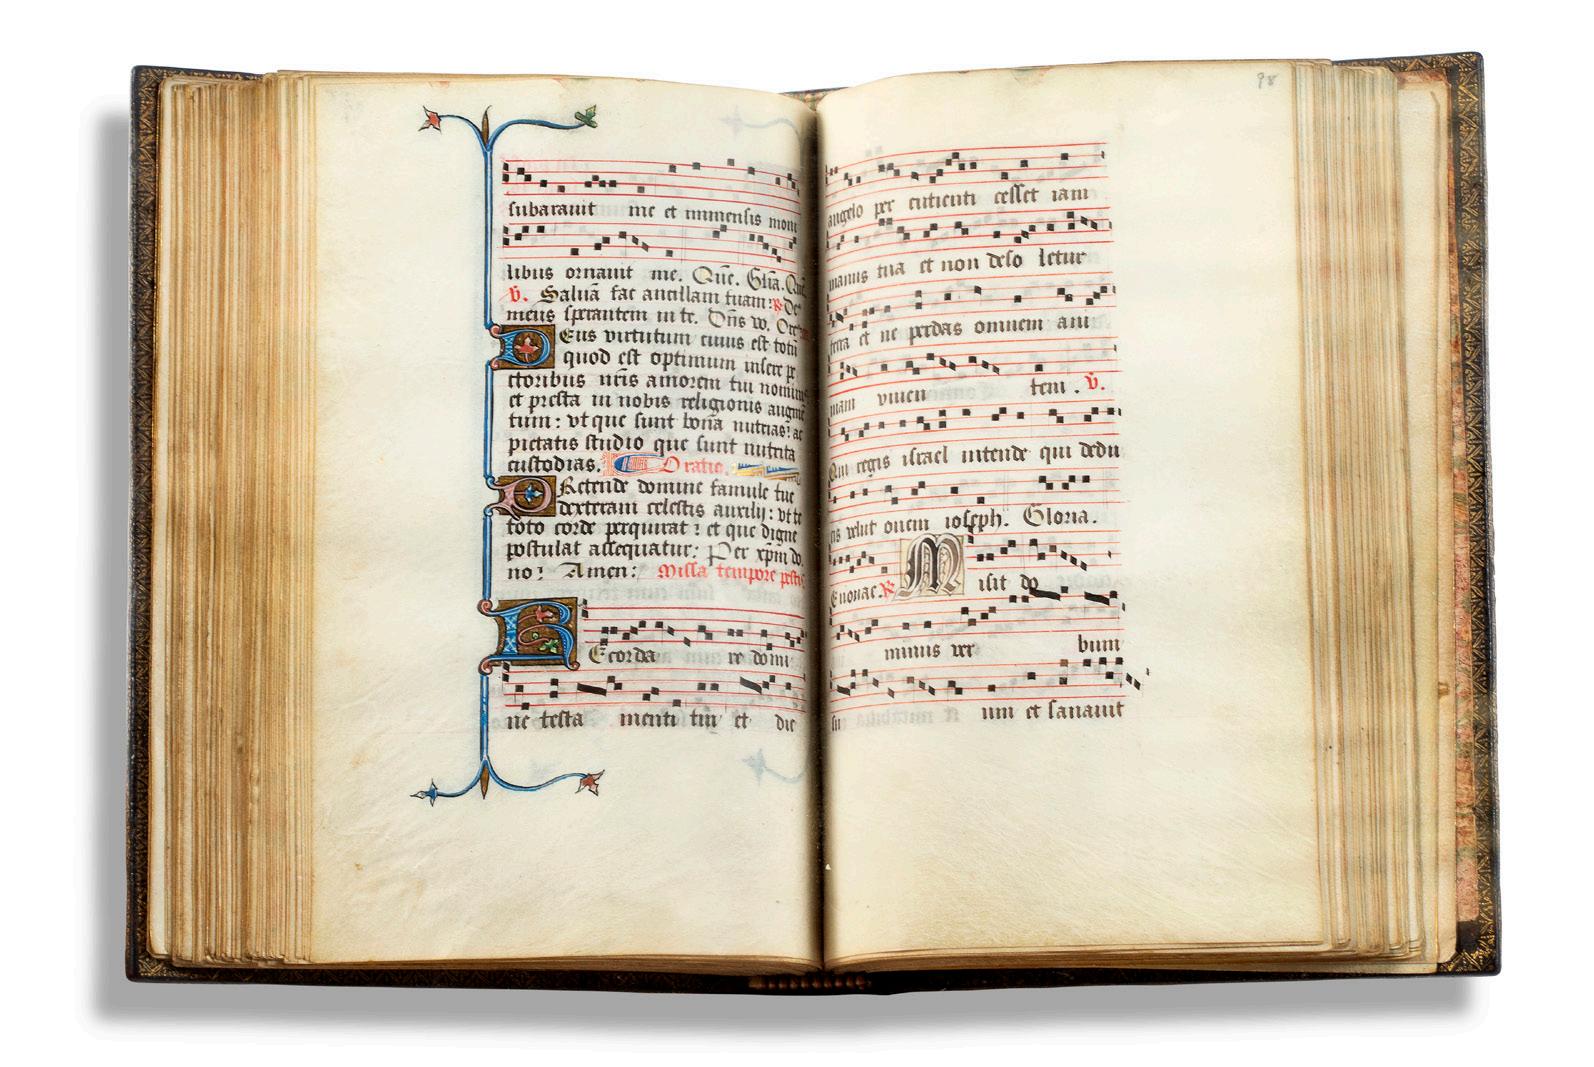 subarauit me et immensis moni
libus ornauit me. Q̄ue. Gl̄ia. Qūe
℣. Saluā fac ancillam tuam: ℟ De
meus sperantem in te. Dn̄s vo. Or
Deus virtutum cuius est totū
quod est optimum insere pe
ctoribus nr̄is amorem tui nominis
et presta in nobis religionis augmē
tum: vt que sunt bona nutrias: ac
pietatis studio que sunt nutrita
custodias. Oratio.
Pretende domine famule tue
dexteram celestis auxilij: vt te
toto corde perquirat: et que digne
postulat assequatur: Per xp̄m do.
no: Amen: Missa tempore pestis
Recorda re domi
ne testa menti tui et dic
98
angelo per cutienti cesset iam
manus tua et non deso letur
terra et ne perdas omnem ani
mam viuen tem. ℣.
Qui regis israel intende qui dedu
cis velut ouem ioseph. Gloria.
Euouae. ℟ Misit do
minus ver bum
su um et sanauit